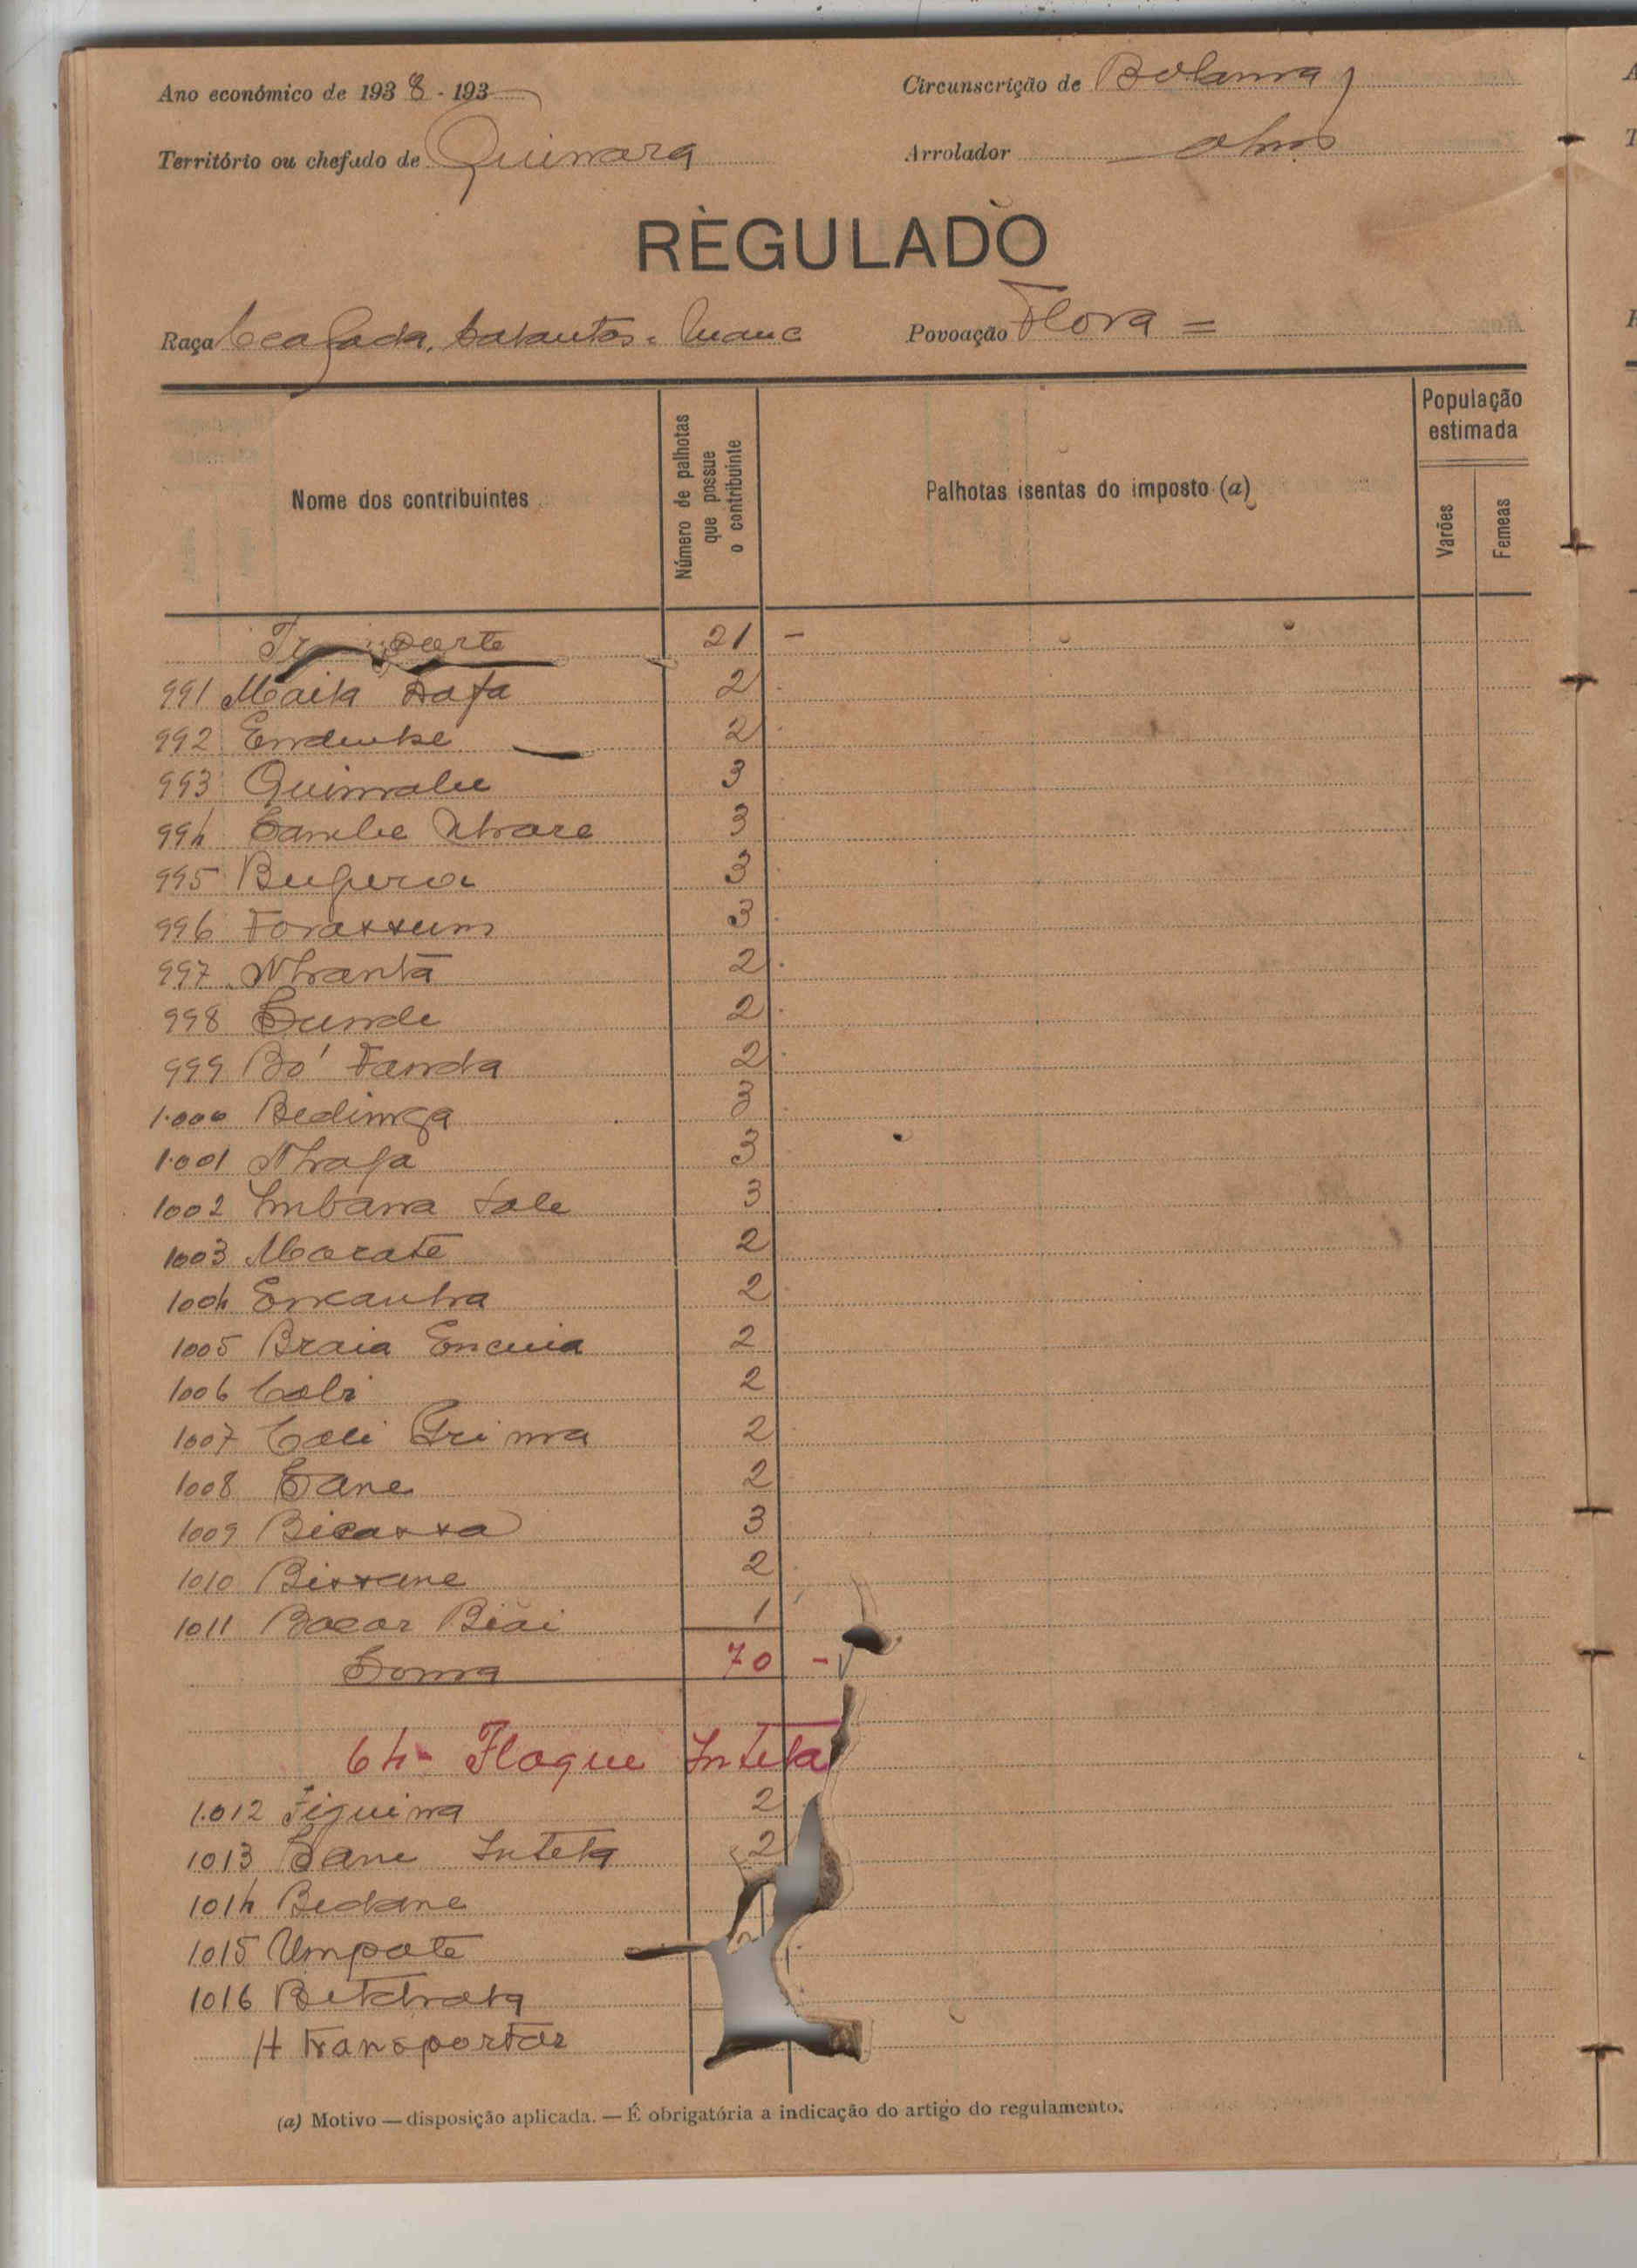 Ano económico de 1938 - 193
Circunscrição de Bolama
Território ou chefado de Quinara
Arrolador
REGULADO
Raça Beafada, balantas e manc
Povoação Flora =
Nome dos contribuintes
Número de palhotas que possue o contribuinte
Palhotas isentas do imposto (a)
População estimada
Varões
Femeas
Transporte 21 -
991 Maila Dafa 2
992 2
993 Quinrabu 3
994 3
995 3
996 Forassum 3
997 N'hantã 2
998 Sunde 2
999 Bó Fanda 2
1.000 Bedinga 3
1.001 N'hafa 3
1002 Imbana Sale 3
1003 Marate 2
1004 2
1005 Braia Encuia 2
1006 2
1007 2
1008 Sane 2
1009 Bicassa 3
1010 Bissane 2
1011 Bacar Biai 1
Soma 70 -
64 - Flaque Inteta
1.012 Fiquina 2
1013 Sane Inteta 2
1014 Bedane
1015 Umpate
1016
A transportar
(a) Motivo — disposição aplicada. — É obrigatória a indicação do artigo do regulamento.